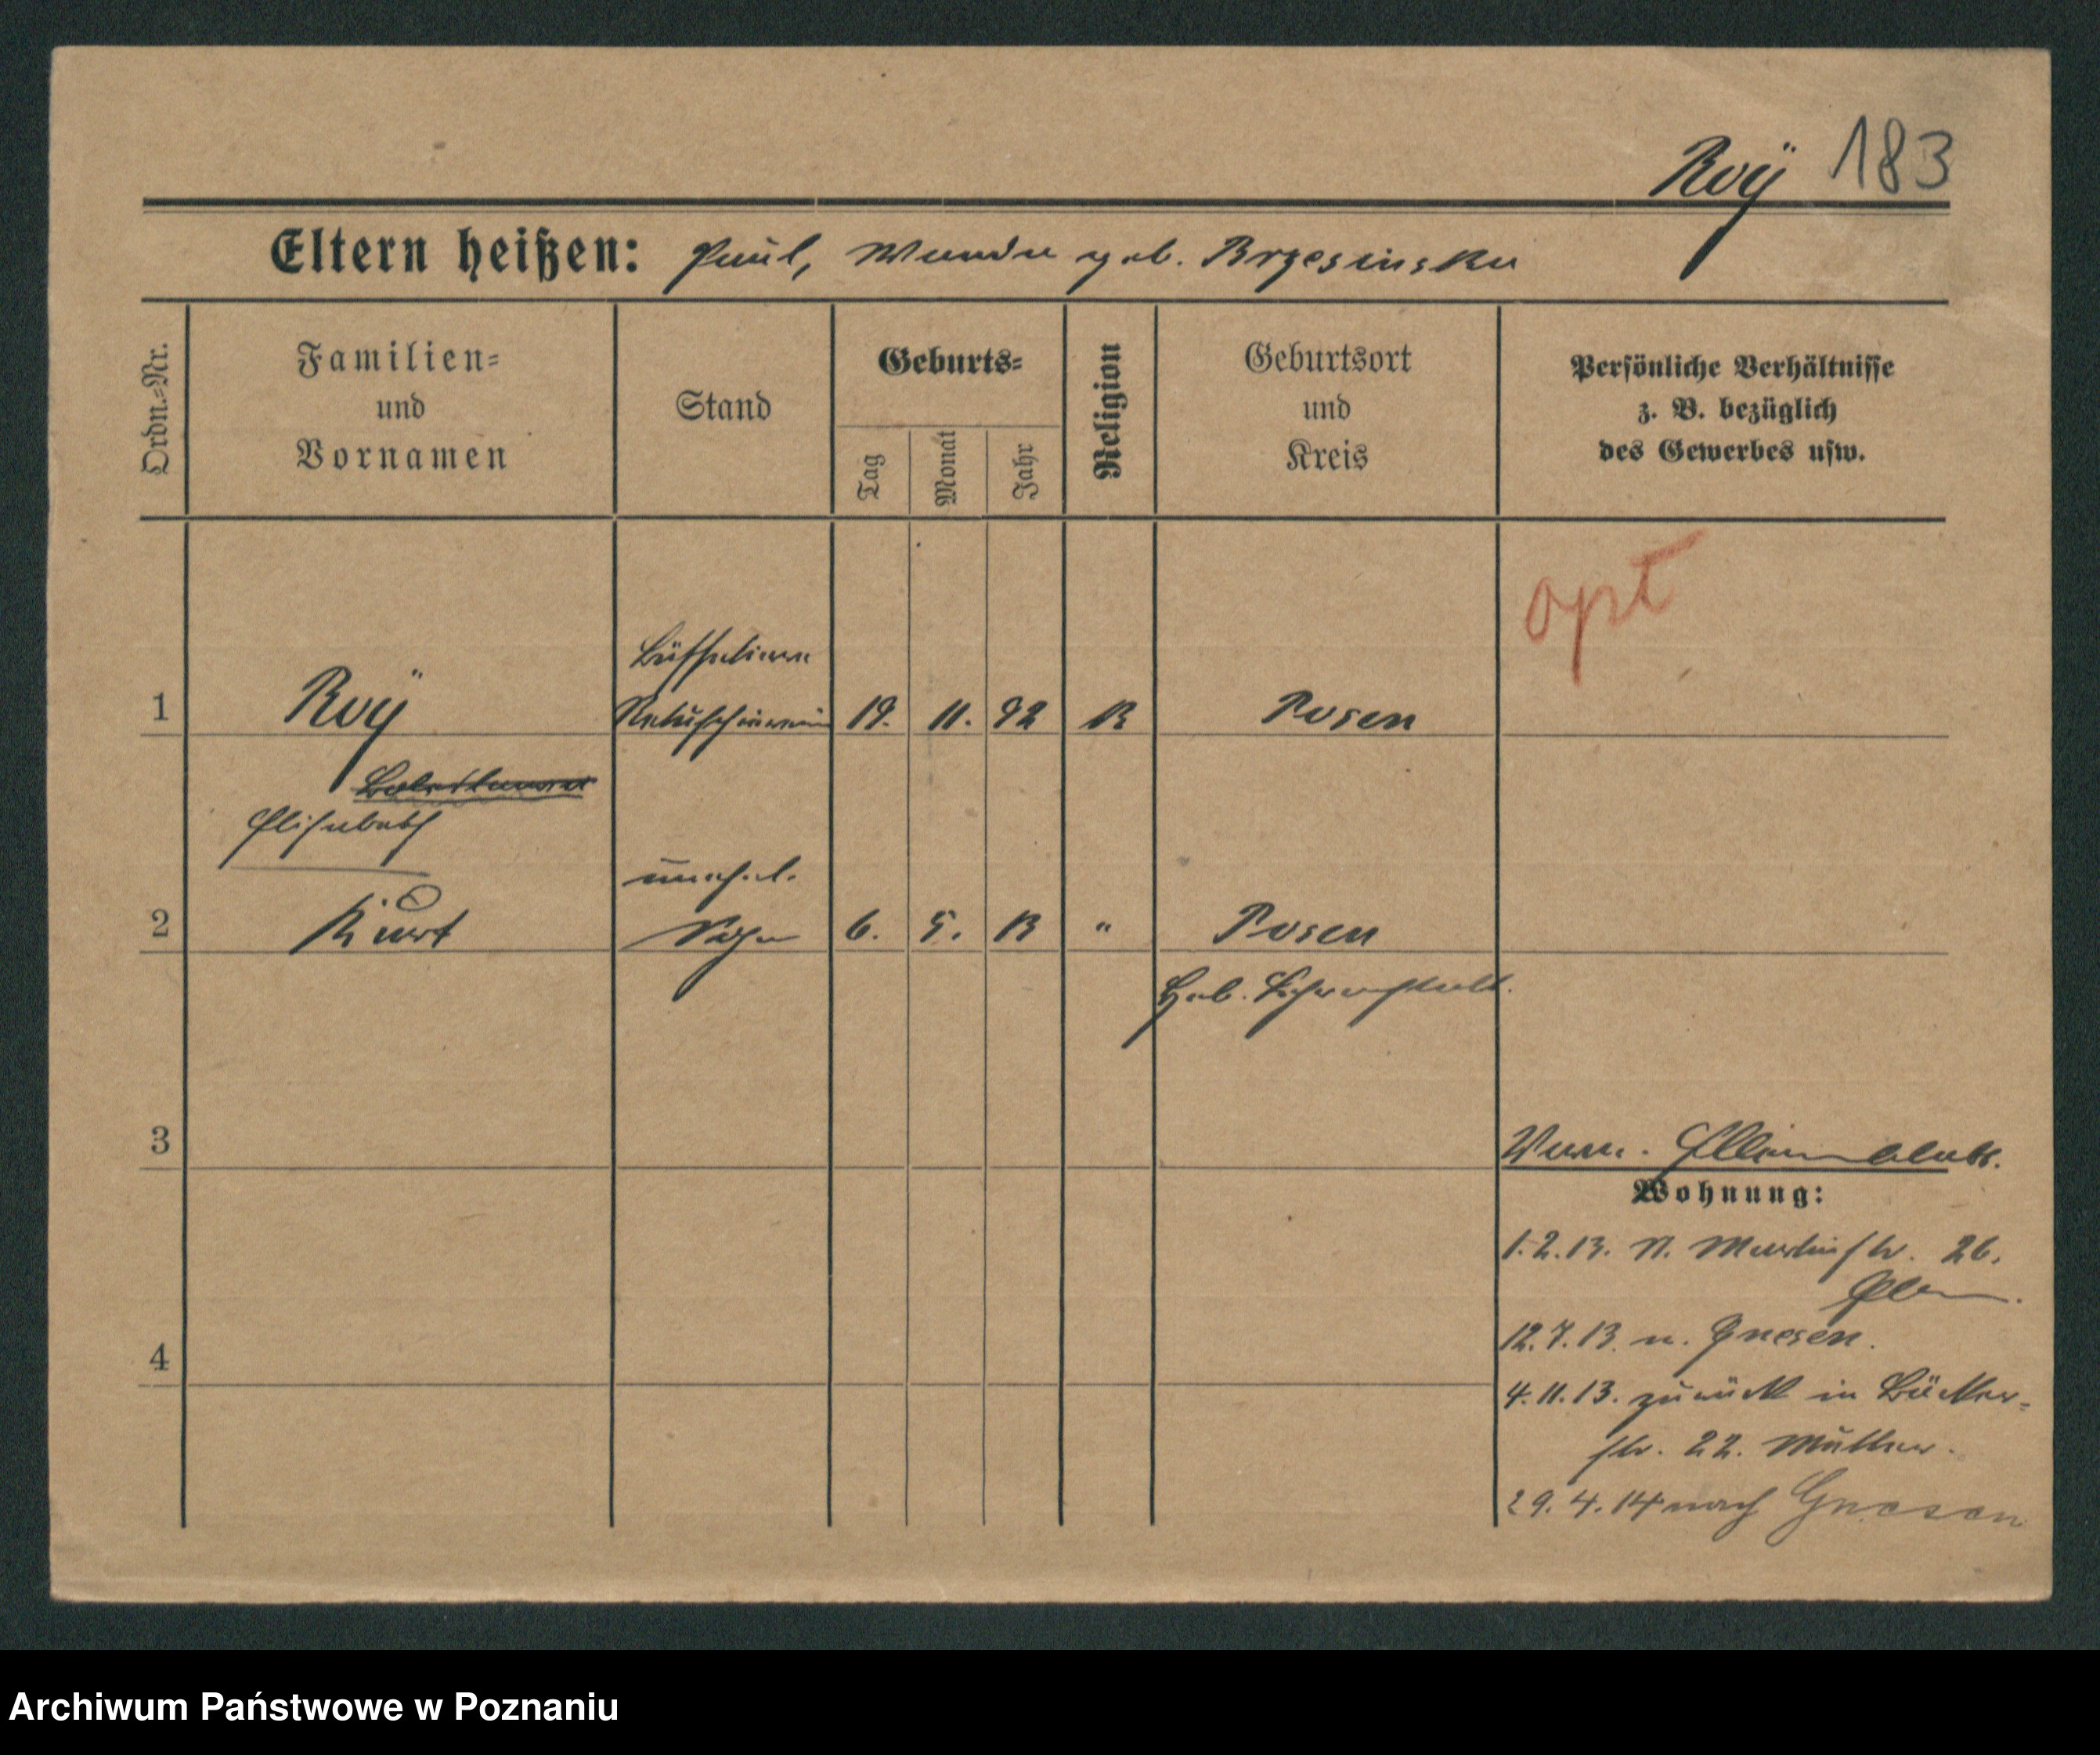 Roÿ 183
Eltern heißen: Paul, Wanda geb. Brzesinska
Ordn.-Nr.
Familien-
und
Vornamen
Stand
Geburts-
Tag
Monat
Jahr
Religion
Geburtsort
und
Kreis
Persönliche Verhältnisse
z. B. bezüglich
des Gewerbes usw.
opt
1 Roÿ 19. 11. 92 K Posen
Elisabeth
unehel.
2 Kurt Sohn 6. 5. 13 " Posen
Heb. Lehranstalt.
3
Wohnung:
1.2.13. N. Martinstr. 26.
12.7.13. n. Gnesen.
4
4.11.13. zurück in Bäcker-
str. 22. Mutter.
29.4.14 nach Gnesen
Archiwum Państwowe w Poznaniu